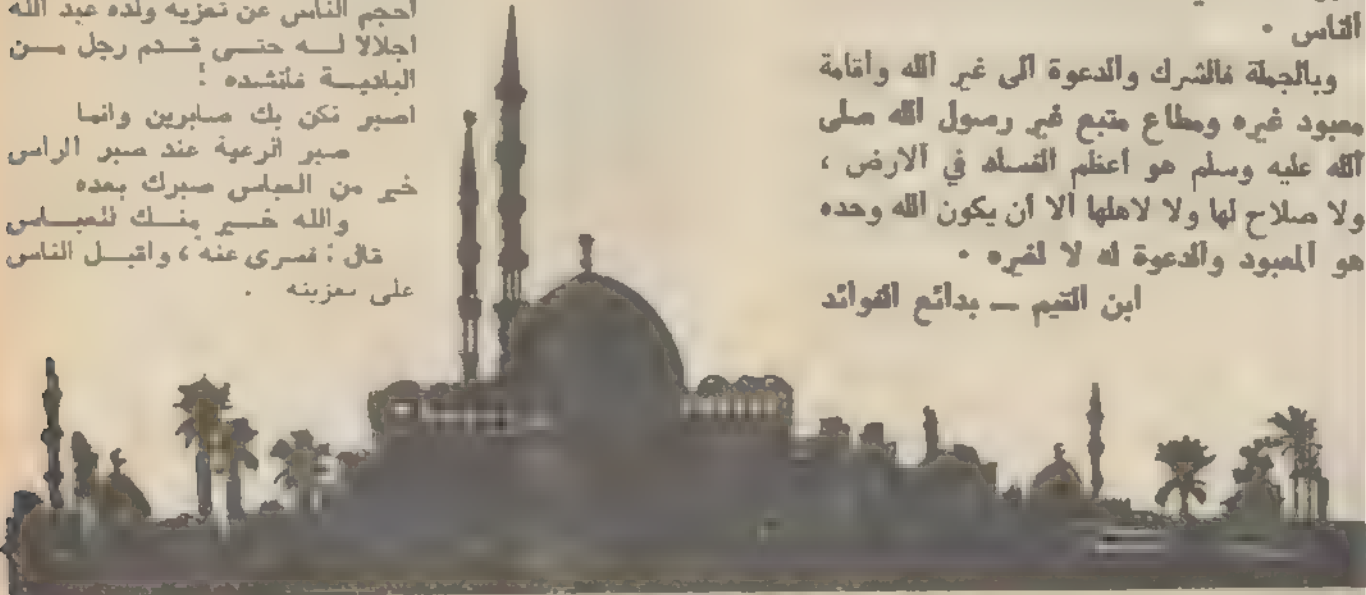 الناس .
وبالجملة فالشرك والدعوة الى غير الله وأقامة
معبود غيره ومطاع متبع غير رسول الله صلى
الله عليه وسلم هو أعظم الفساد في الارض ،
ولا صلاح لها ولا لاهلها الا أن يكون الله وحده
هو المعبود والدعوة له لا لغيره .
ابن القيم — بدائع الفوائد
أحجم الناس عن تعزيه ولده عبد الله
اجلالا له حتى قدم رجل من
البادية فأنشده :
اصبر نكن بك صابرين وانما
صبر الرعية عند صبر الراس
خير من العباس صبرك بعده
والله خير منك للعباس
قال : فسرى عنه ، واقبل الناس
على تعزيته .